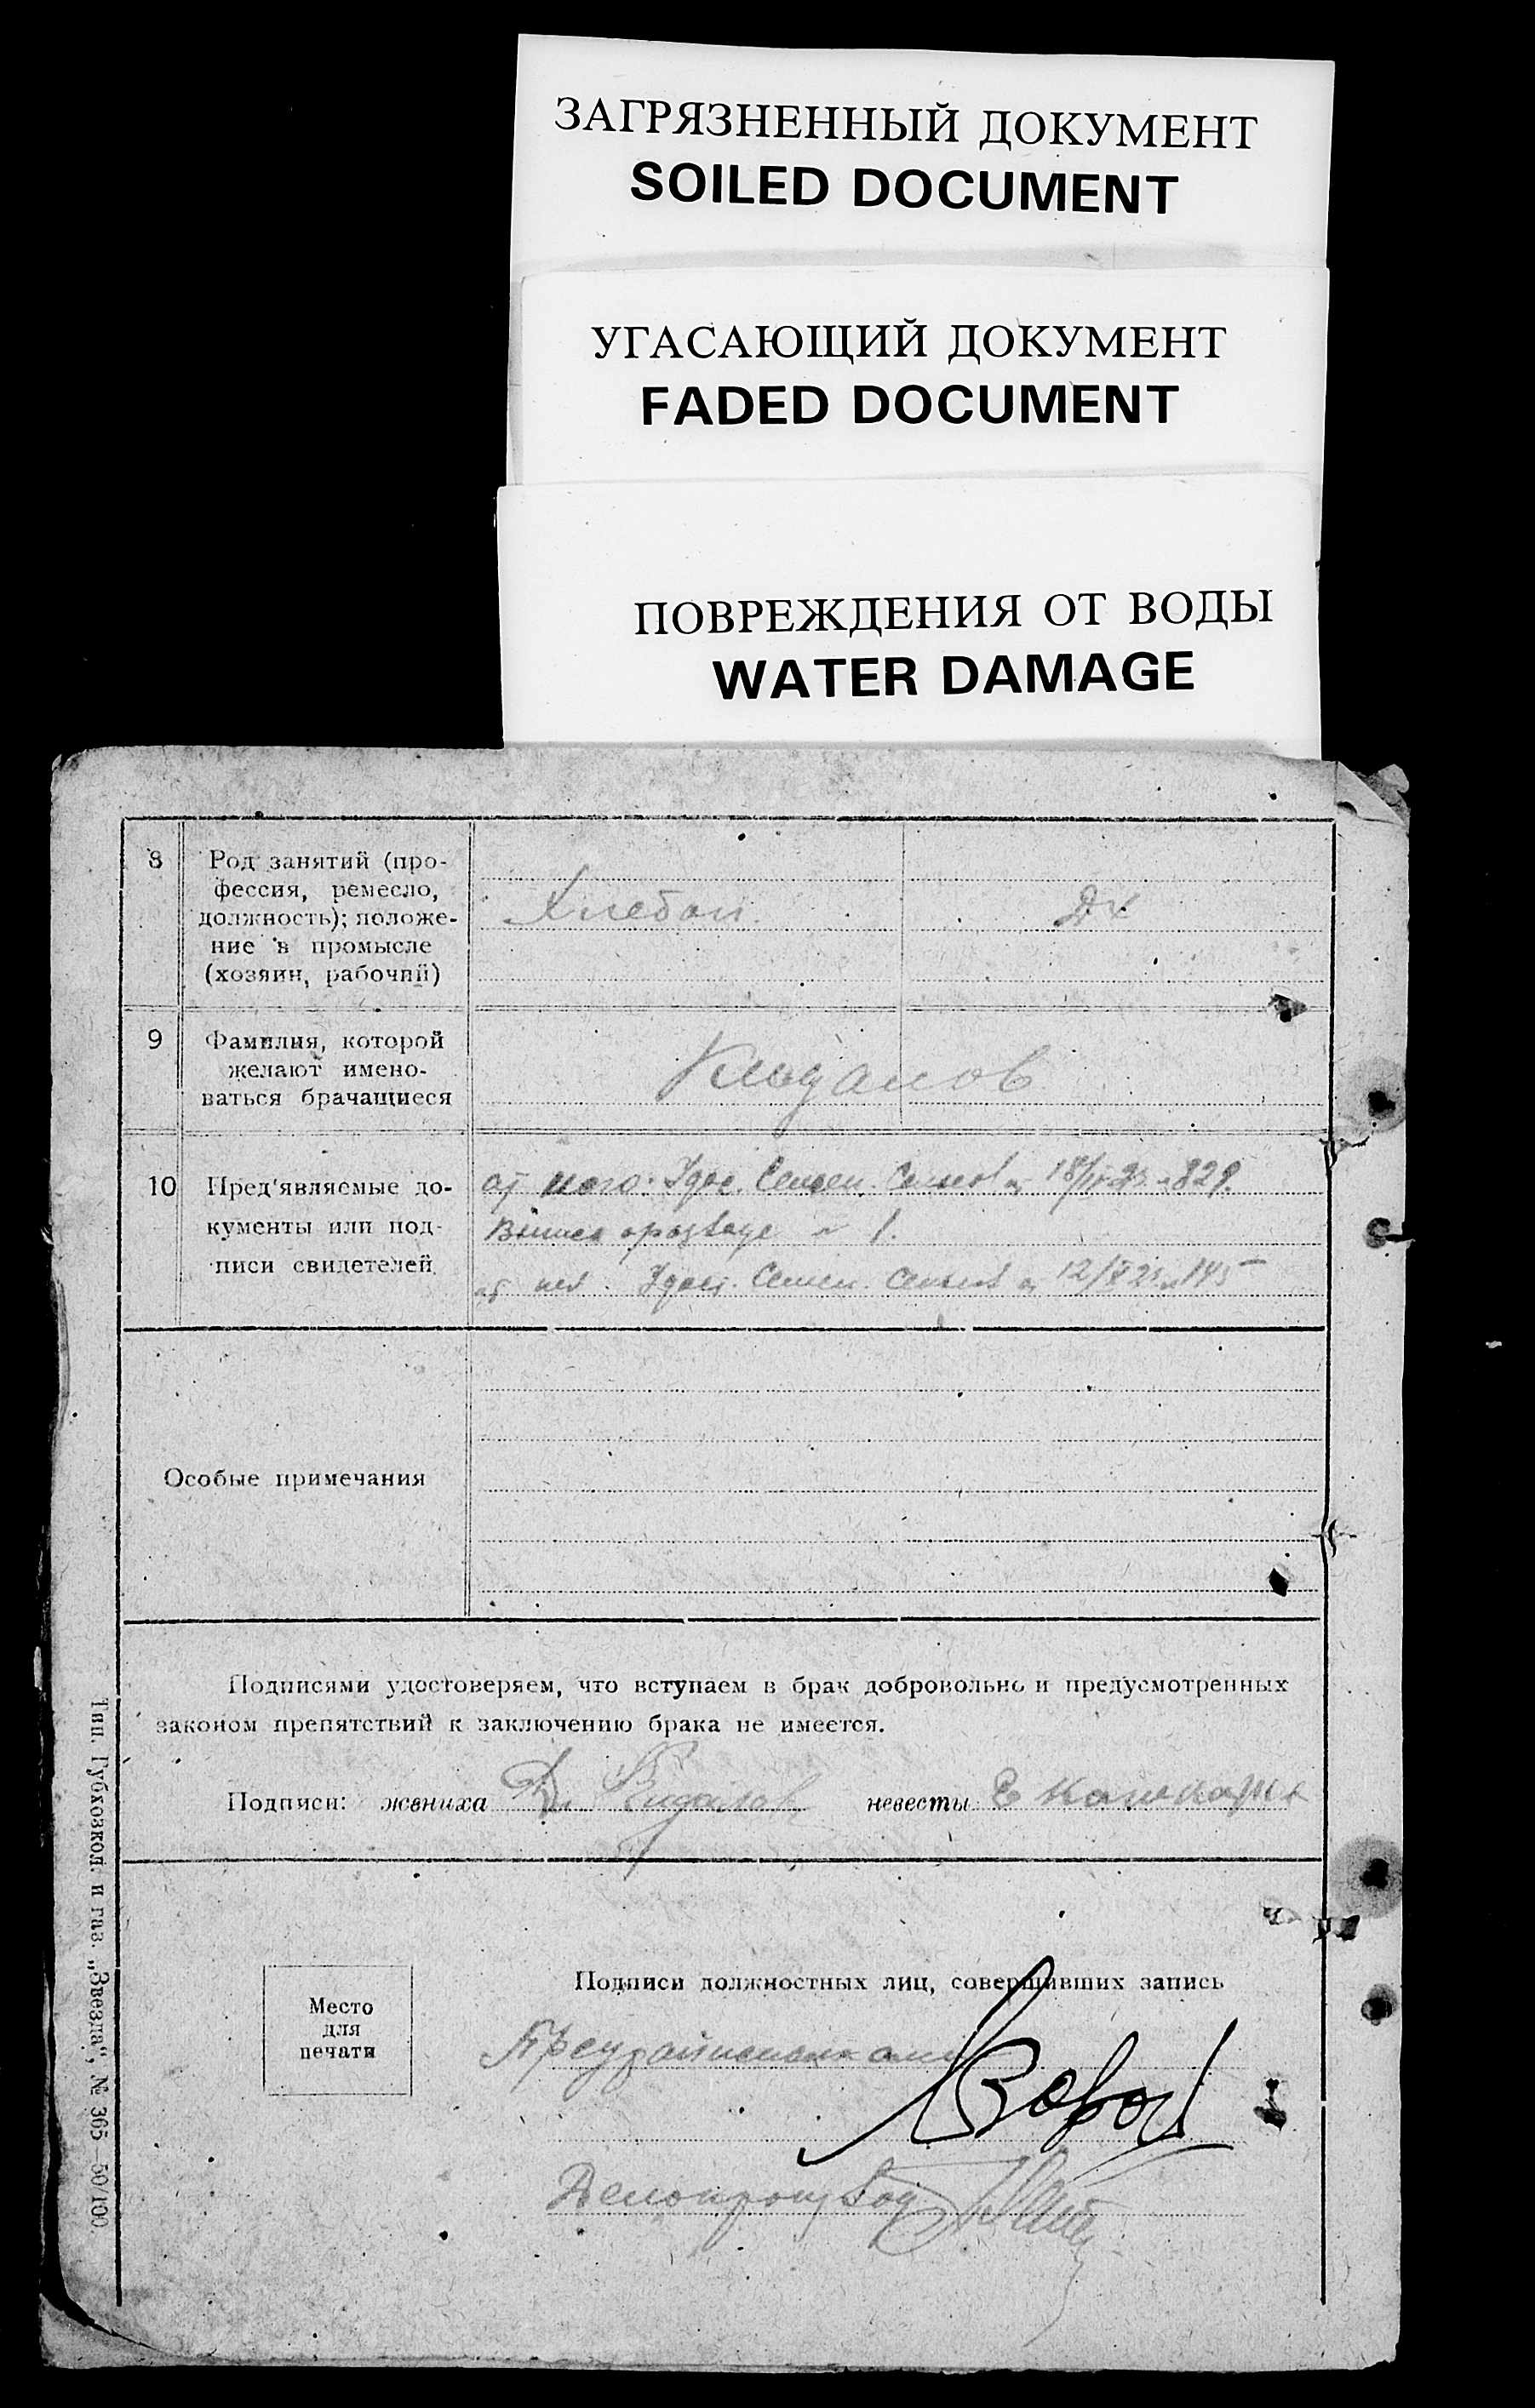 ЗАГРЯЗНЕННЫЙ ДОКУМЕНТ
SOILED DOCUMENT
УГАСАЮЩИЙ ДОКУМЕНТ
FADED DOCUMENT
ПОВРЕЖДЕНИЯ ОТ ВОДЫ
WATER DAMAGE
8 Род занятий (про-
фессия, ремесло,
должность); положе-
ние в промысле
(хозяин, рабочий)
Хлебоп. Дх
9 Фамилия, которой
желают имено-
ваться брачащиеся
10 Пред'являемые до-
кументы или под-
писи свидетелей
от него. Удос. Семен. Сельсов 18/IV-23 829.
1.
от нев. Удос. Семен. Сельсов 12/X 23 145
Особые примечания
Подписями удостоверяем, что вступаем в брак добровольно и предусмотренных
законом препятствий к заключению брака не имеется.
Подписи: жениха невесты
Место
для
печати
Подписи должностных лиц, совершивших запись
Предрайисполкома
Делопроизвод
Тип. Губковкой. и газ. „Звезда", № 365—50/100.